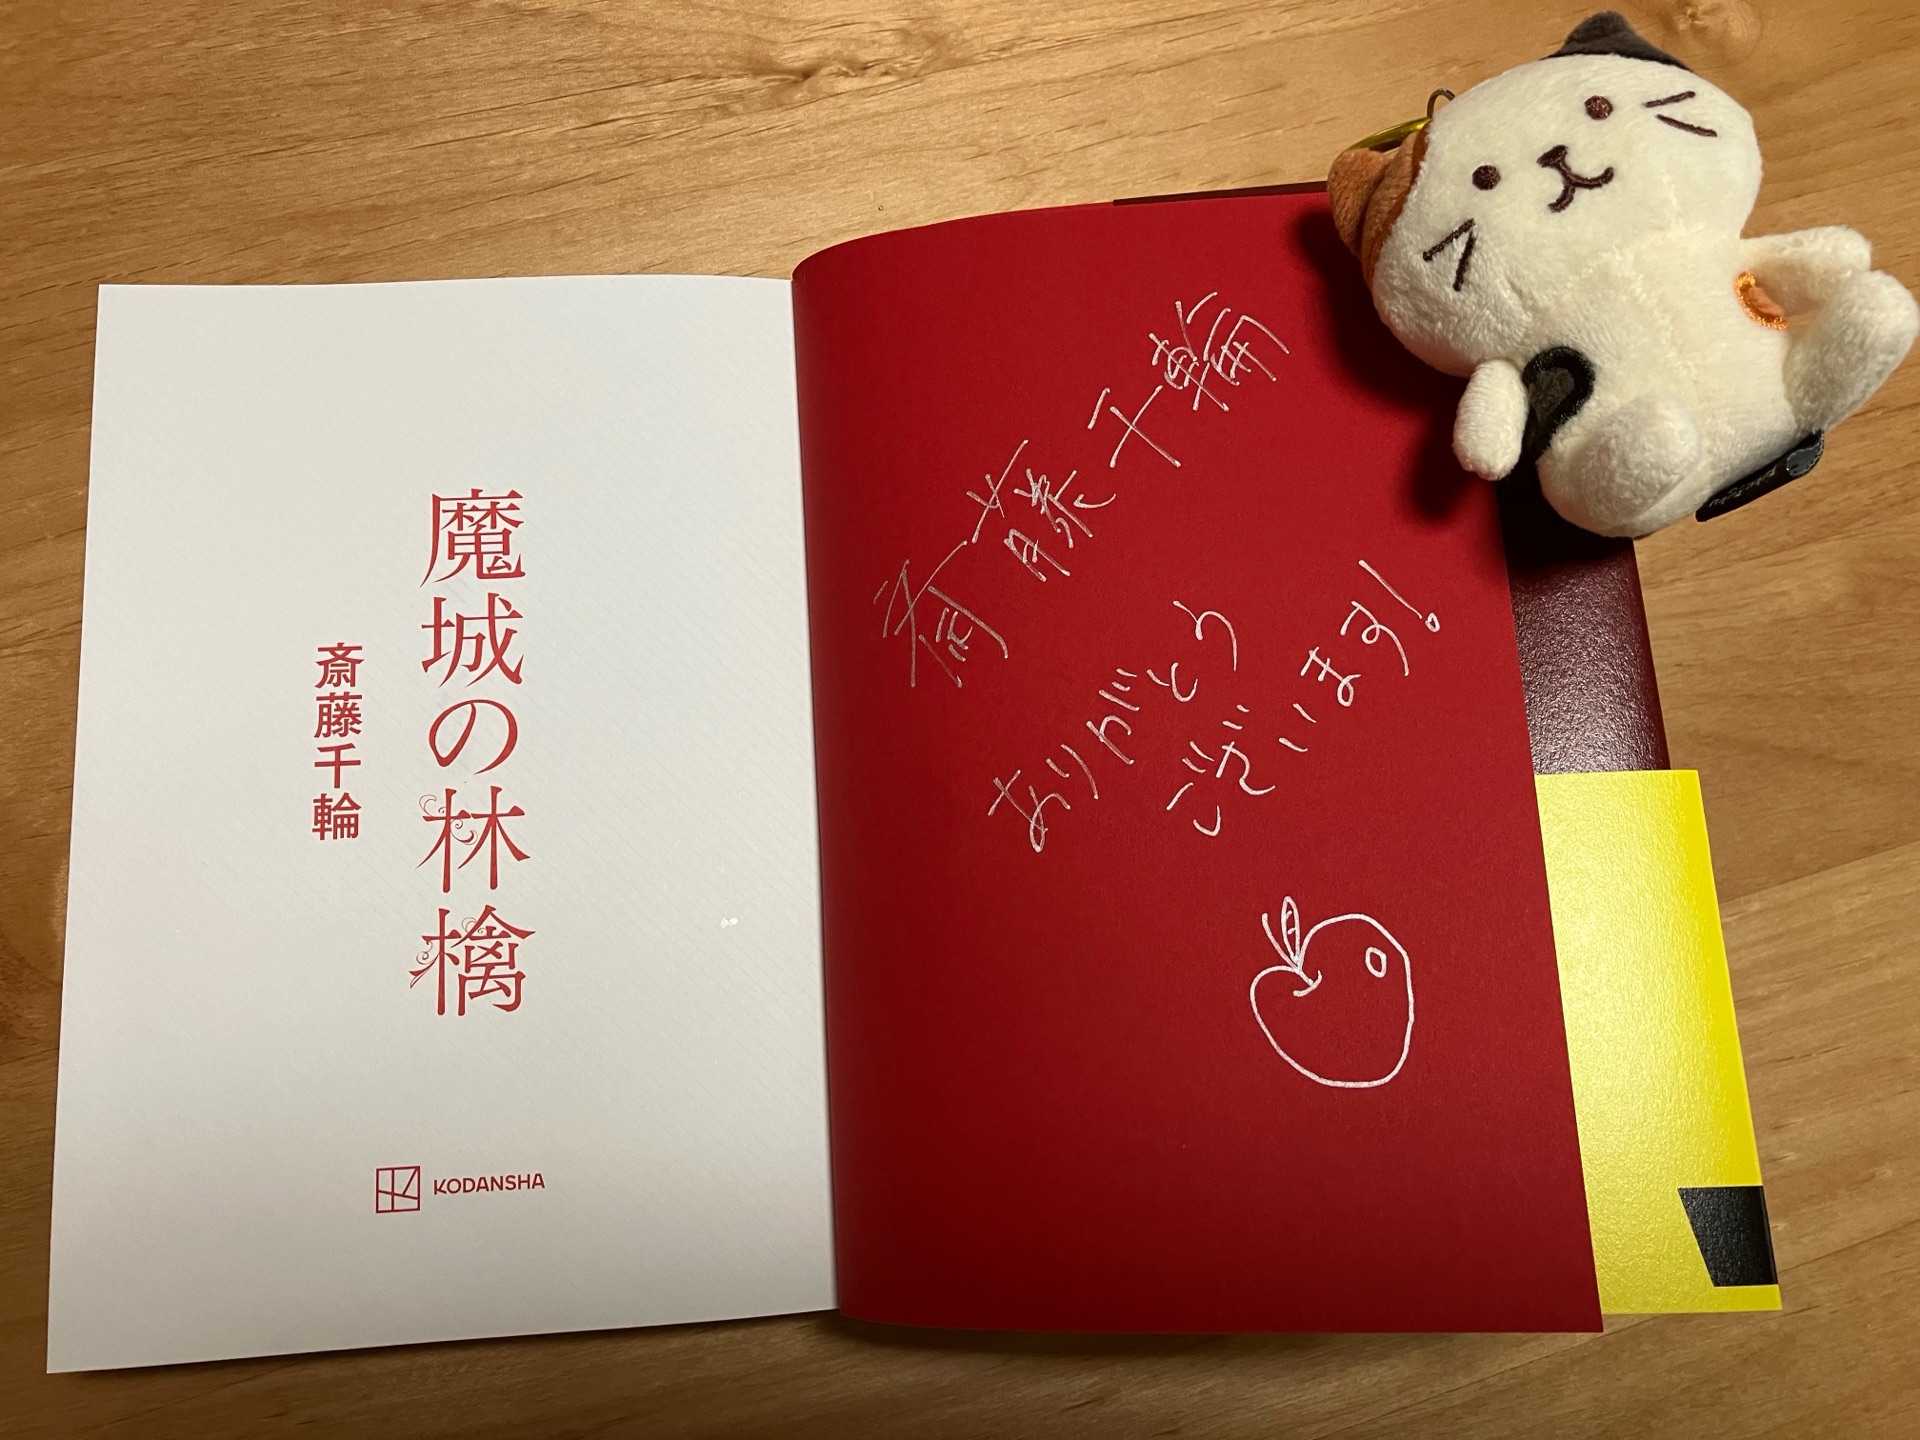 魔城の林檎
斎藤千輪
KODANSHA
斎藤千輪
ありがとう
ございます!